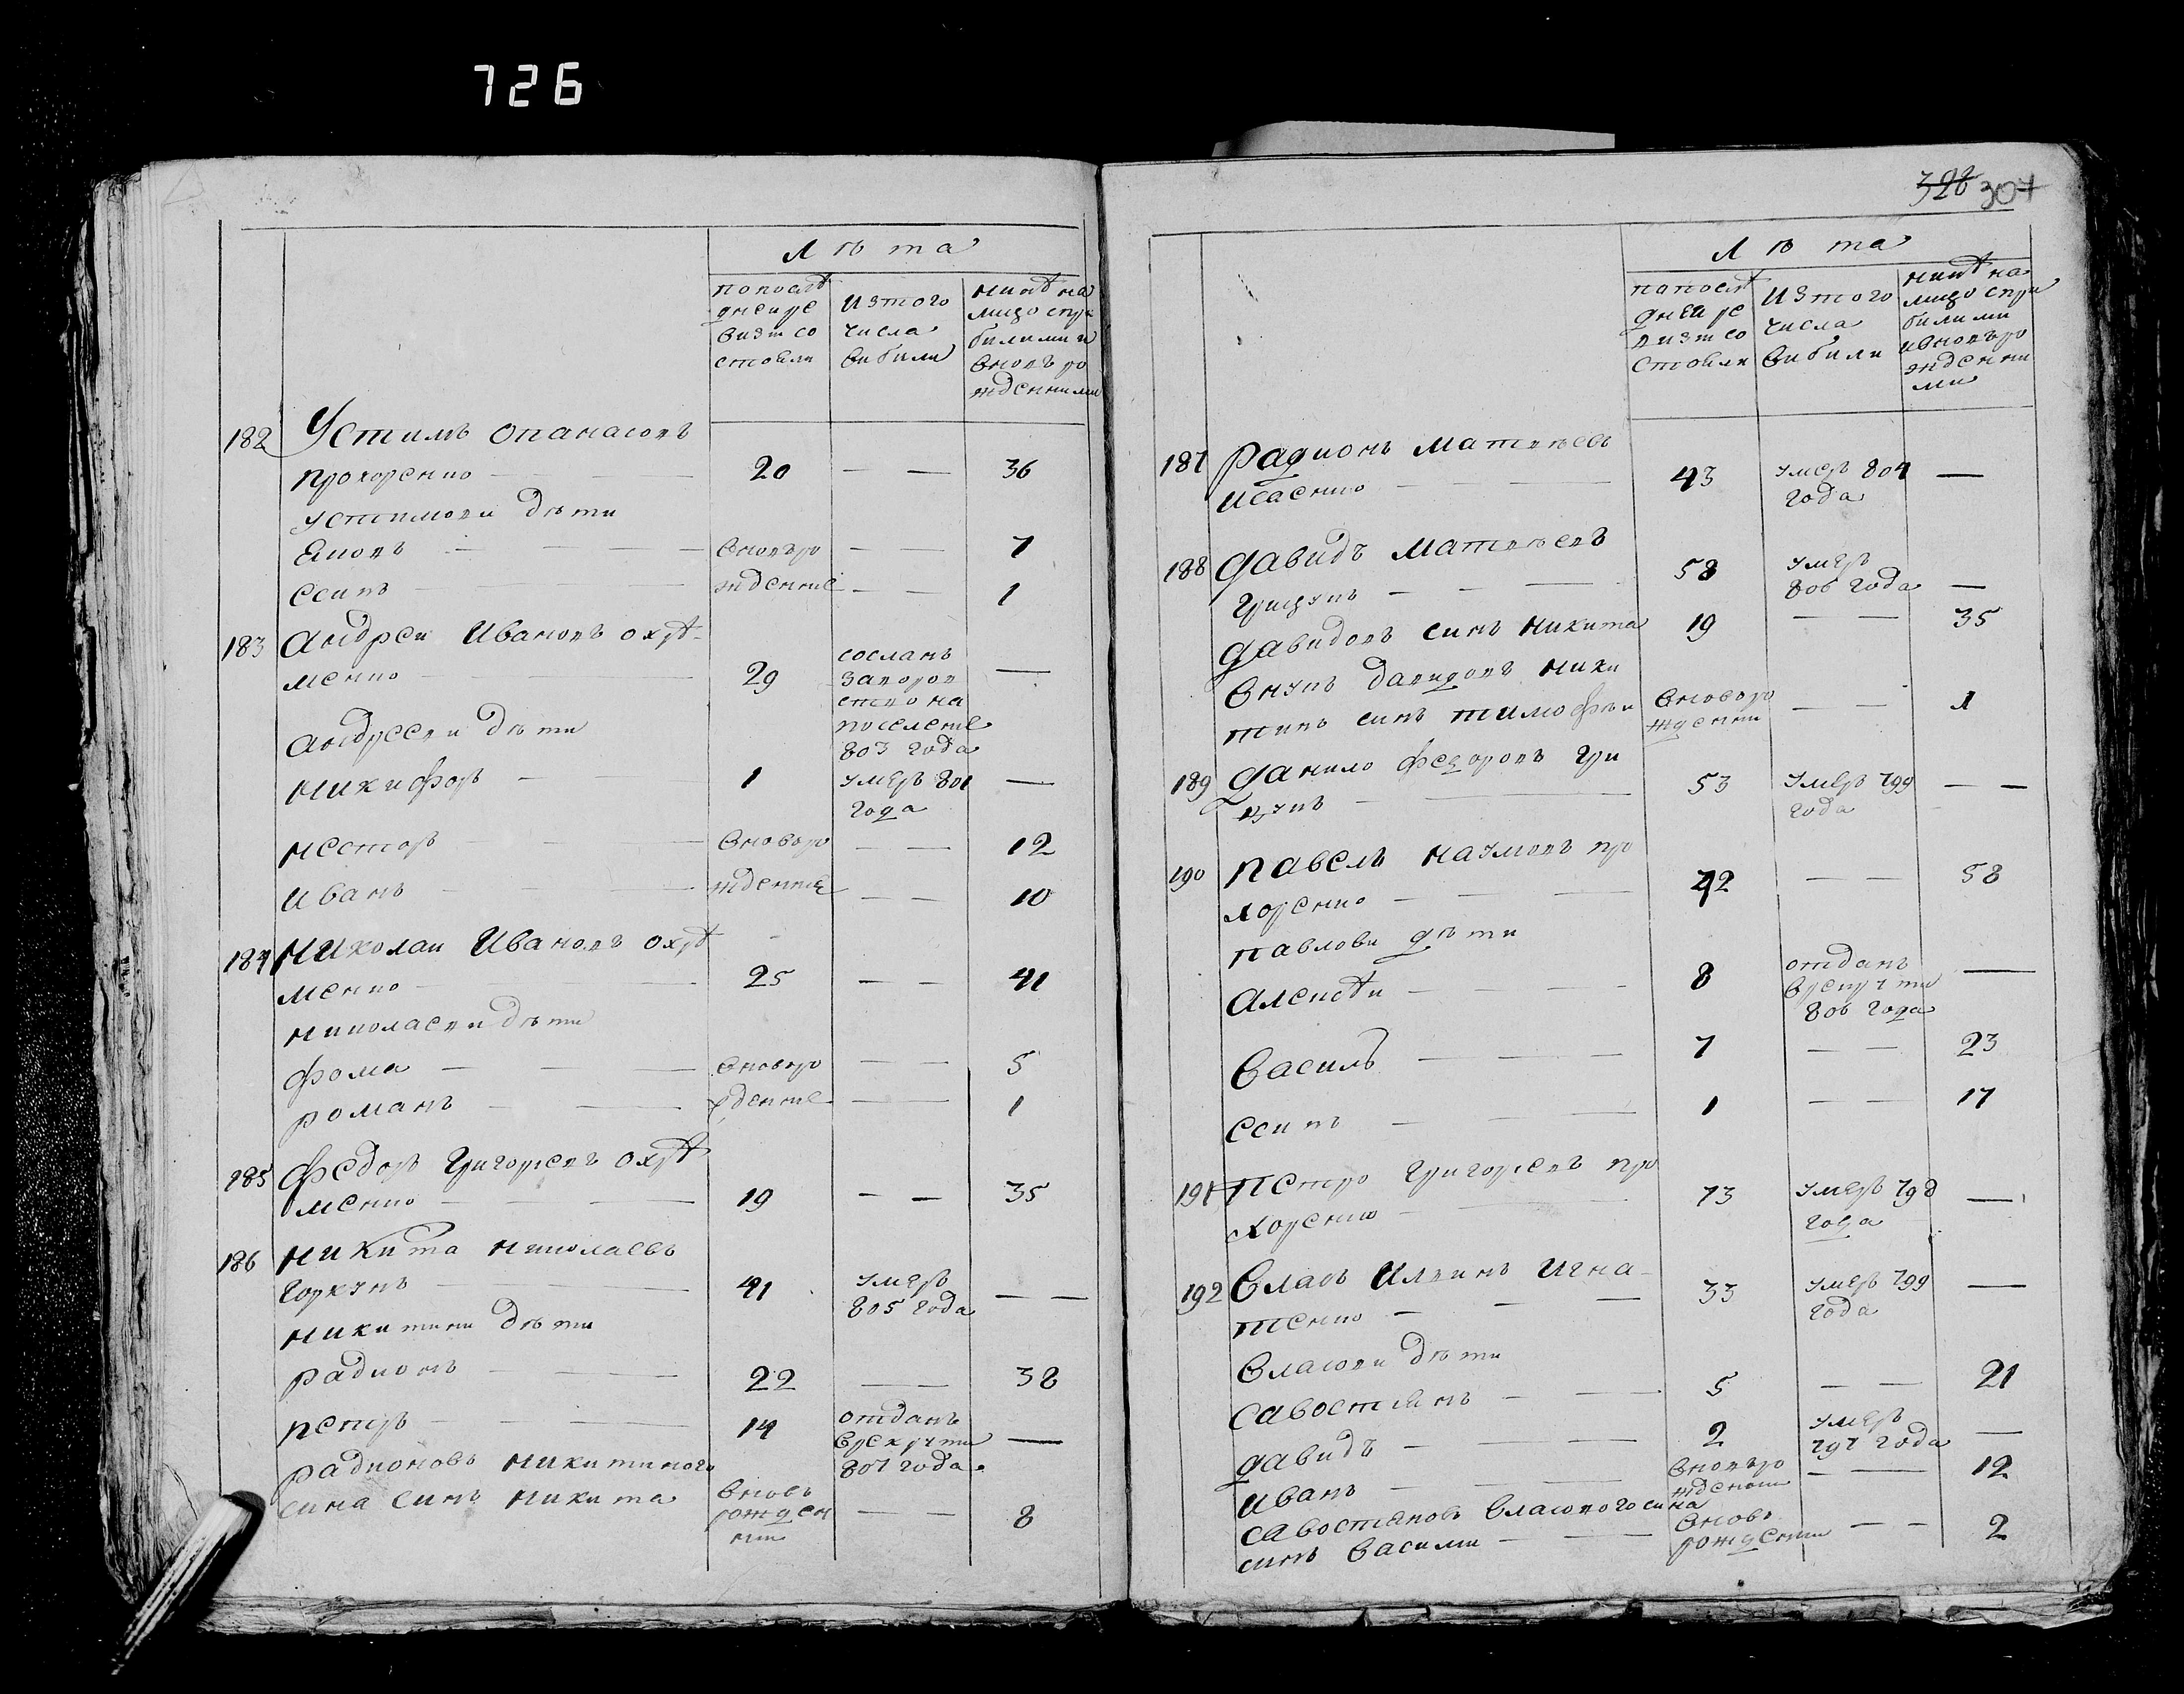 726
Лѣта
попослѣ
днеи ре
визи со
стояли
изтого
числа
вибили
нинѣ на
лицо спри
билими и
вновъ ро
жденними
182 Устимъ Опанасовъ
Прохоренко — — 20 — — 36
Устимови дѣти
Яковъ — — — вновъро — — 7
Есипъ — — жденние — — 1
183 Андреи Ивановъ Охрѣ-
менко — — 29 сосланъ —
заворов
ство на
поселение
803 года
Андрееви дѣти
Никифоръ — — 1 умеръ 801 —
года
Несторъ — — вновъро — — 12
Иванъ — — жденние — — 10
184 Николаи Ивановъ Охрѣ
менко — — 25 — — 41
Николаеви дѣти
Фома — — вновъро — — 5
Романъ — — жденние — — 1
185 Федоръ Григорьевъ Охрѣ
менко — — 19 — — 35
186 Никита Николаевъ
Горкунъ — — 41 умеръ — —
805 года
Никитини дѣти
Радионъ — — 22 — — 38
Петръ — — 14 отданъ —
врекрути
807 года
Радионовъ Никитиного
сина синъ Никита вновь — — 8
рожден
ни
328 307
Лѣта
попослѣ
днеи ре
визи со
стояли
изтого
числа
вибили
нинѣ на
лицо спри
билими
ивновъро
жденни
ми
187 Радионъ Матвѣевъ
Исаенко — — 43 умеръ 804 —
года
188 Давидъ Матвѣевъ
Грицунъ — — 58 умеръ —
806 года
Давидовъ синъ Никита 19 — — 35
внукъ Давидовъ Ники
тинъ синъ Тимофѣи вновъро — — 1
жденни
189 Данило Федоровъ Гри
цунъ — — 53 умеръ 799 — —
года
190 Павелъ Наумовъ Про
хоренко — — 42 — — 58
Павлови дѣти
Алексѣи — — 8 отданъ —
врекрути
806 года
Василь — — 7 — — 23
Есипъ — — 1 — — 17
191 Петро Григорьевъ Про
хоренко — — 73 умеръ 798 —
года
192 Власъ Ильинъ Игна-
тенко — — 33 умеръ 799 —
года
Власови дѣти
Савостиянъ — — 5 — — 21
Давидъ — — 2 умеръ —
797 года
Иванъ — — вновъро — — 12
жденни
Савостяновъ Власового сина
синъ Василии — — вновъ — — 2
рожденни